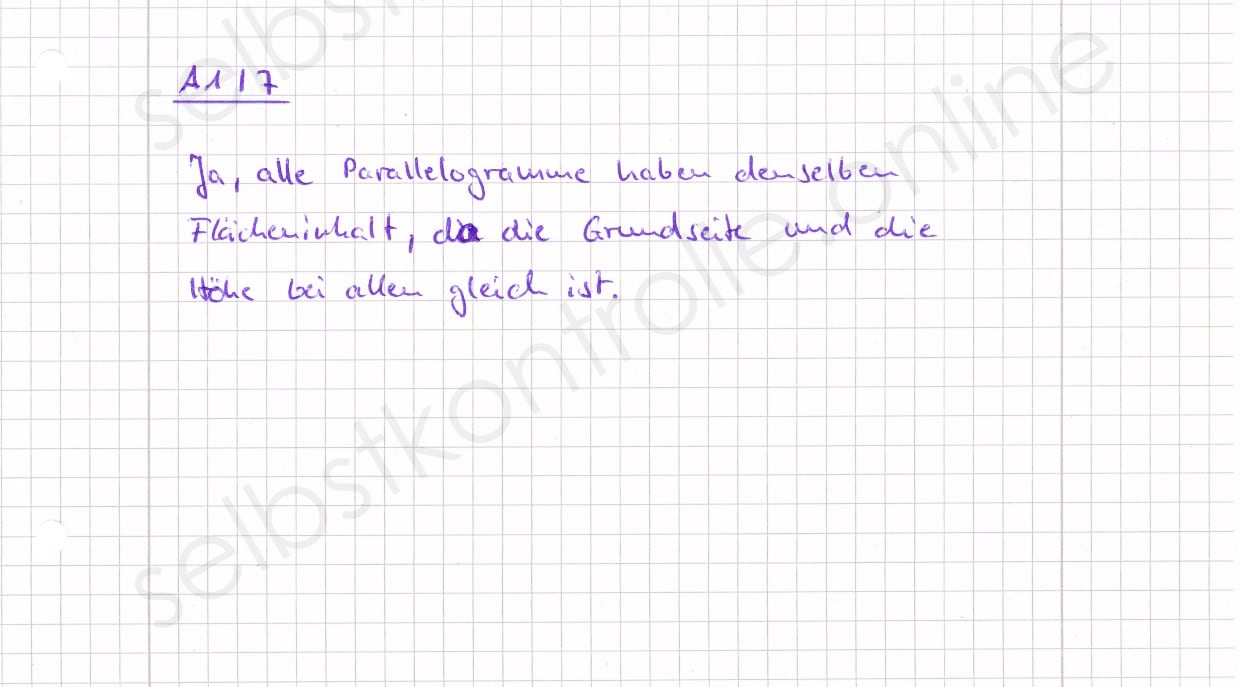 A1 / 7
Ja, alle Parallelogramme haben denselben
Flächeninhalt, da die Grundseite und die
Höhe bei allen gleich ist.
selbstkontrolle.online
selbst